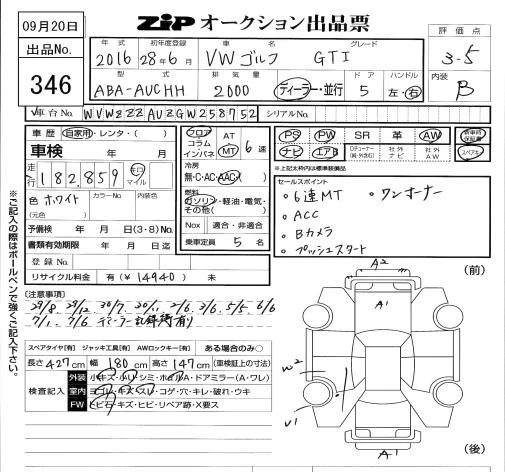 09月20日
ZiP オークション出品票
評価点
3-5
内装
B
出品No.
346
年式
2016
初年度登録
28年6月
車名
VWゴルフ
グレード
GTI
型式
ABA-AUCHH
排気量
2000
ディーラー・並行
ドア
5
ハンドル
左・右
車台No.
WVWZZZAUZGW258752
シリアルNo.
車歴
自家用・レンタ・( )
車検 年 月
走行
182,859
キロ
マイル
色 ホワイト
(元色)
カラーNo.
内装色
予備検 年 月 日(3・8)No.
書類有効期限 年 月 日迄
登録No.
リサイクル料金 有(¥14940) 未
フロア
コラム
インパネ
AT
MT
6速
冷房
無・C・AC・AAC
燃料
ガソリン・軽油・電気・
その他( )
Nox 適合・非適合
乗車定員 5 名
PS PW SR 革 AW
ナビ エアB
社外
ナビ
社外
AW
新車時
保証書
スペアキー
※上記太枠内は標準装備品
セールスポイント
・6速MT ・ワンオーナー
・ACC
・Bカメラ
・プッシュスタート
(前)
(注意事項)
29/8. 29/12 30/7. 30/11. 2/6 3/6. 5/5 6/6
7/1. 7/6 ディーラー記録簿有り
スペアタイヤ[有] ジャッキ工具[有] AWロックキー[有] ある場合のみ○
長さ 427cm 幅 180cm 高さ 147cm (車検証上の寸法)
検査記入
外装 小キズ・小凹・シミ・ホイルA・ドアミラー(A・ワレ)
室内 ヨゴレ・キズ・スレ・コゲ・穴・キレ・破れ・ウキ
FW ヒビ石・キズ・ヒビ・リペア跡・X要ス
A2
A1
W2
U1
A1
(後)
※ご記入の際はボールペンで強くご記入下さい。